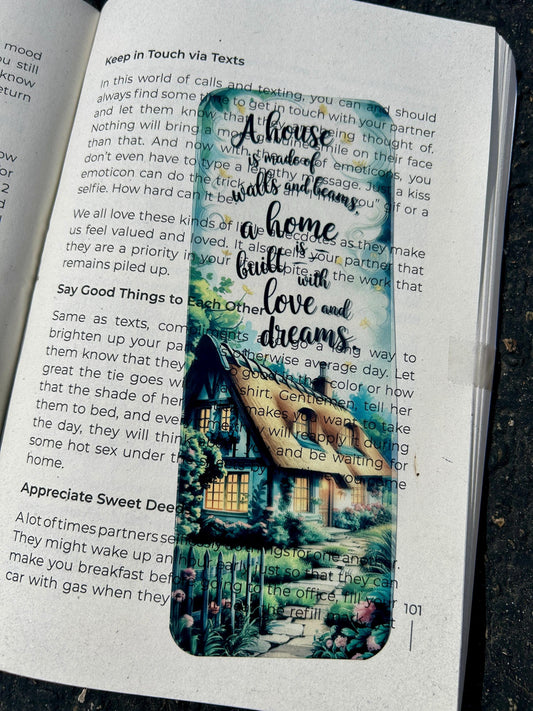 mood
u still
know
eturn
ow
or
2
Keep in Touch via Texts
In this world of calls and texting, you can and should
always find some to get in touch with your partner
and let them know that they being thought of.
Nothing will bring a smile on their face
than that. And now with of emoticons, you
don't even have to type a lengthy message. Just a kiss
emoticon can do the trick you" gif or a
selfie. How hard can it be
We all love these kinds of anecdotes as they make
us feel valued and loved. It also tells your partner that
they are a priority in your spite the work that
remains piled up.
Say Good Things to Each Other
Same as texts, compliments go a long way to
brighten up your otherwise average day. Let
them know that they color or how
great the tie goes with shirt. Gentlemen, tell her
that the shade of her makes you want to take
them to bed, and even will reapply it during
the day, they will think and be waiting for
some hot sex under the
home.
Appreciate Sweet Deeds
A lot of times partners things for one another.
They might wake up an hour early just so that they can
make you breakfast before going to the office, fill your
car with gas when they the refill mark,
101
A house
is made of
walls and beams,
a home
is
built
with
love and
dreams.